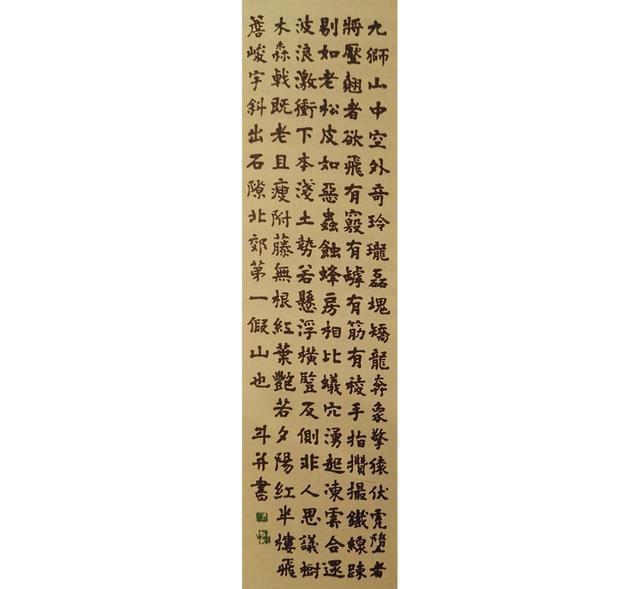 九獅山中空外奇玲瓏磊塊矯龍奔象擎猿伏虎墮者
將壓翹者欲飛有竅有罅有筋有稜手指攢撮鐵線踈
剔如老松皮如惡蟲蝕蜂房相比蟻穴湧起凍雲合遝
波浪激衝下本淺土勢若懸浮橫豎反側非人思議樹
木森戟既老且瘦附藤無根紅葉艷若夕陽紅半樓飛
簷峻宇斜出石隙北郊第一假山也 斗書